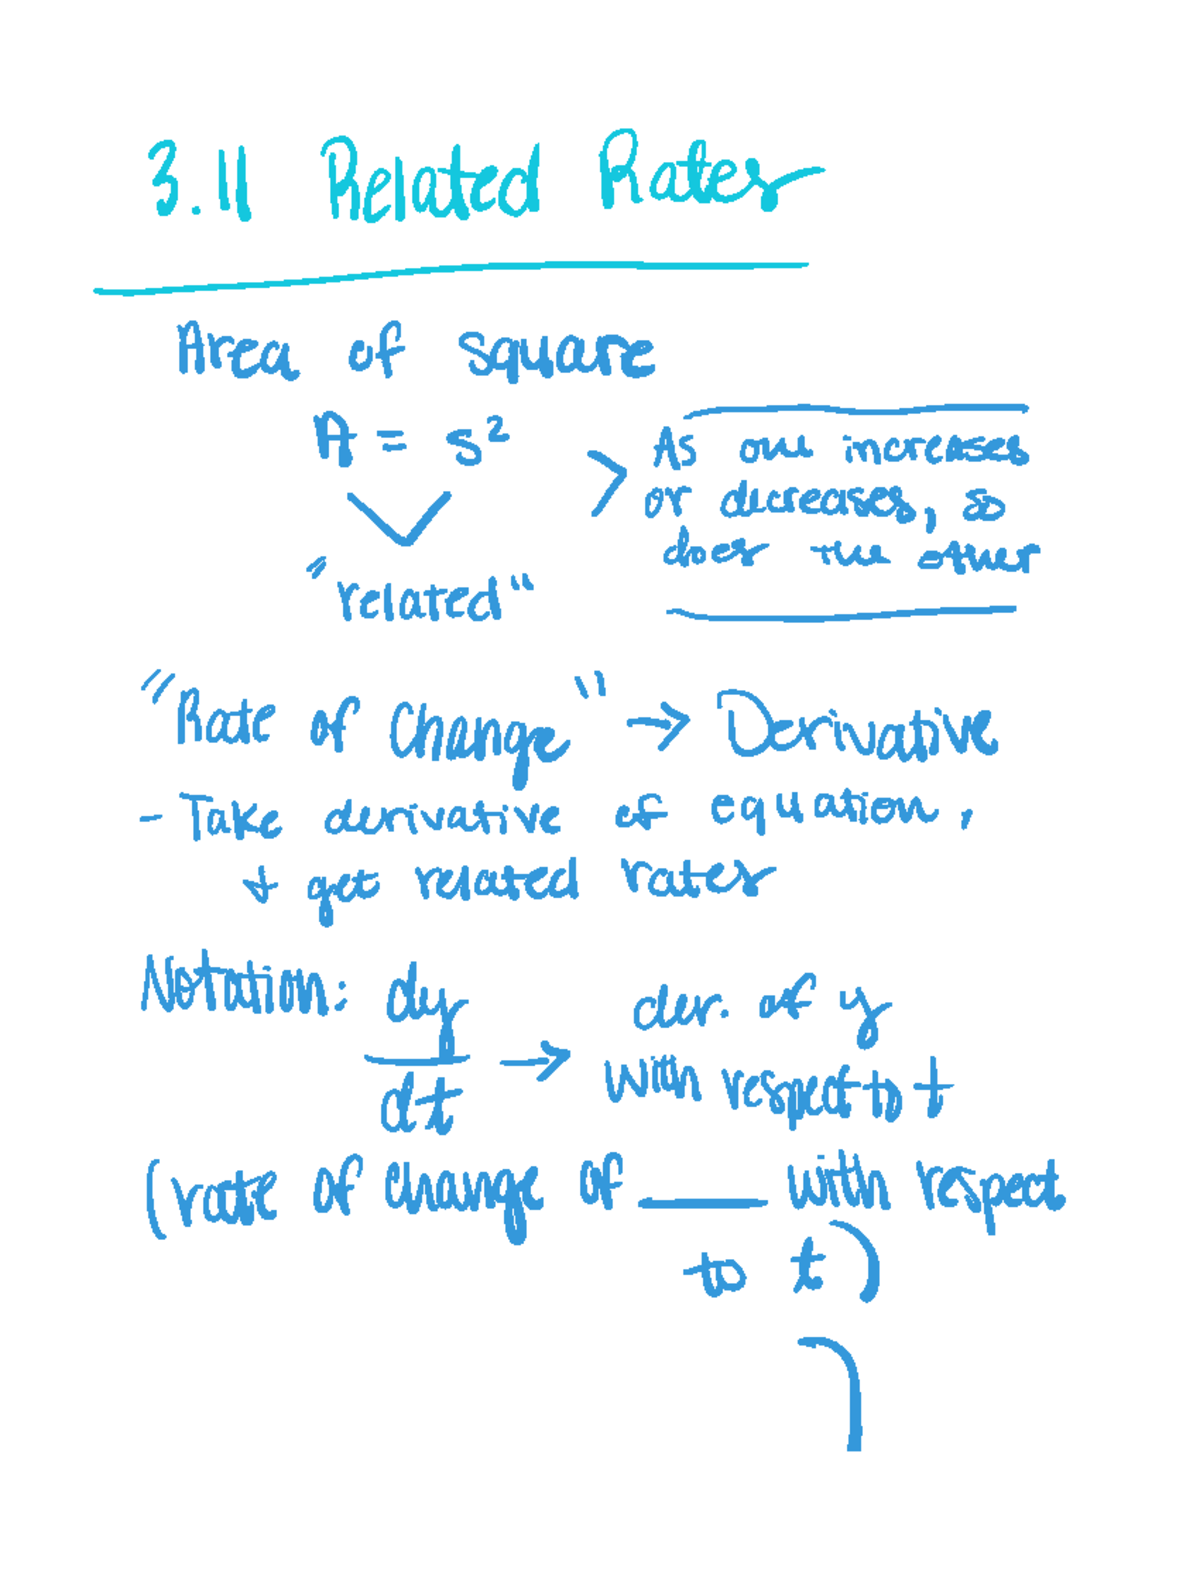 3.11 Related Rates
Area of square
A = s²
"related"
> As one increases
or decreases, so
does the other
"Rate of Change" → Derivative
- Take derivative of equation,
+ get related rates
Notation: dy/dt → der. of y
with respect to t
(rate of change of ____ with respect
to t)
)